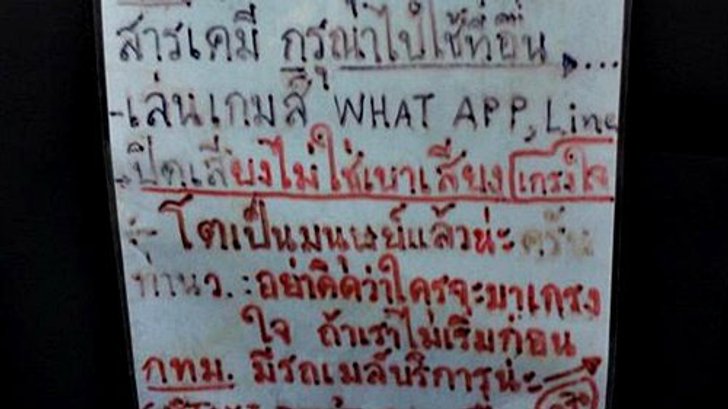 สารเคมี กรุณาไปใช้ที่อื่น ....
-เล่นเกมส์ WHAT APP, Line
-ปิดเสียงไม่ใช่เบาเสียง เกรงใจ
- โตเป็นมนุษย์แล้วน่ะครับ
ทำนว.:อย่าคิดว่าใครจะมาเกรง
ใจ ถ้าเราไม่เริ่มก่อน
กทม. มีรถเมล์บริการน่ะ